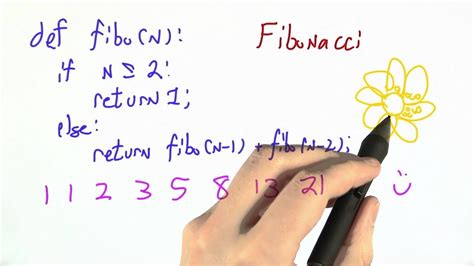 def fibo(N):
Fibonacci
if N ≤ 2:
return 1;
else:
return fibo(N-1) + fibo(N-2);
1 1 2 3 5 8 13 21